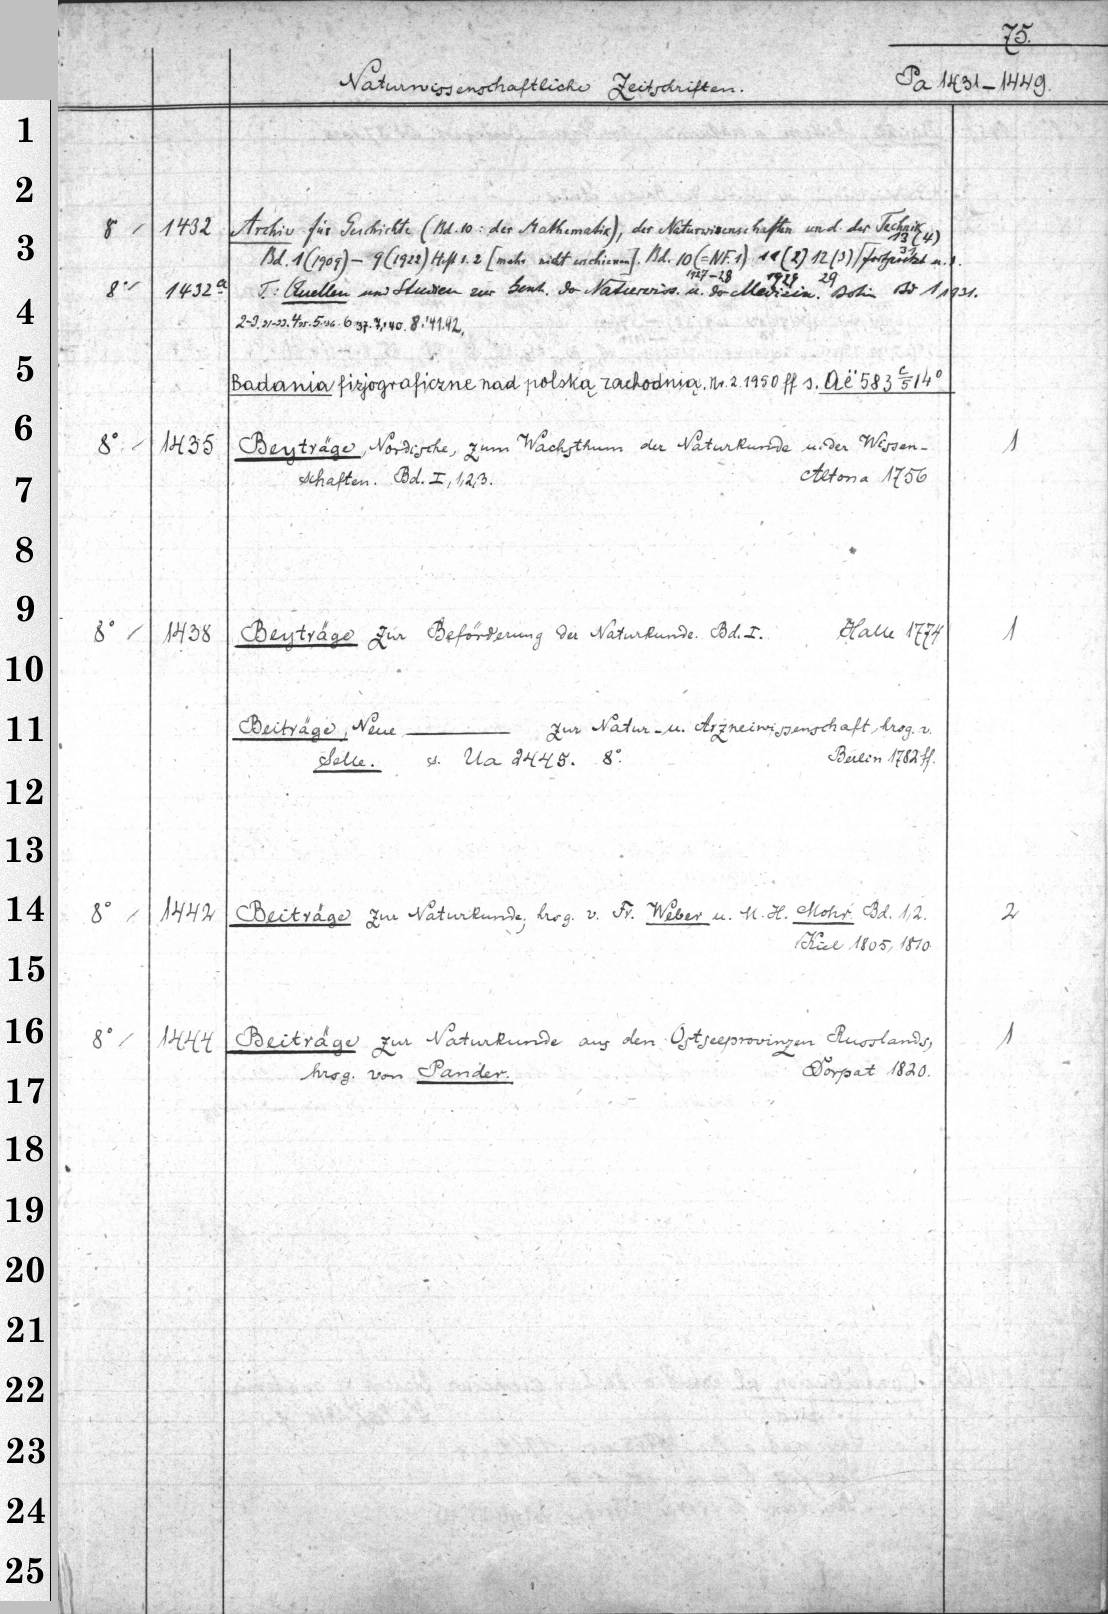 75.
Naturwissenschaftliche Zeitschriften. Pa 1431–1449.
1
2
3
4
5
6
7
8
9
10
11
12
13
14
15
16
17
18
19
20
21
22
23
24
25
8 / 1432 Archiv für Geschichte (Bd. 10: der Mathematik), der Naturwissenschaften und der Technik
13 (4)
Bd. 1 (1909) – 9 (1922) Heft 1.2 [mehr nicht erschienen]. Bd. 10 (=NF. 1) 11 (2) 12 (3)
1927–28 1929 29 31
8° / 1432a T: Quellen und Studien zur Gesch. der Naturwiss. u. der Medizin. Berlin Bd 1 1931.
2-3. 31-33. 4 35. 5 36. 6 37. 7, 40. 8. 41.42.
Badania fizjograficzne nad polską zachodnią. Nr. 2. 1950 ff s. Aë 583 c/5 14°
8° / 1435 Beyträge, Nordische, zum Wachsthum der Naturkunde u. der Wissen- 1
schaften. Bd. I, 1,2,3. Altona 1756
8° / 1438 Beyträge zur Beförderung der Naturkunde. Bd. I. Halle 1774 1
Beiträge, Neue ——— zur Natur- u. Arzneiwissenschaft, hrsg. v.
Selle. s. Ua 2445. 8°. Berlin 1782 ff.
8° / 1442 Beiträge zur Naturkunde, hrsg. v. Fr. Weber u. M. H. Mohr. Bd. 1,2. 2
Kiel 1805, 1810
8° / 1444 Beiträge zur Naturkunde aus den Ostseeprovinzen Russlands, 1
hrsg. von Pander. Dorpat 1820.